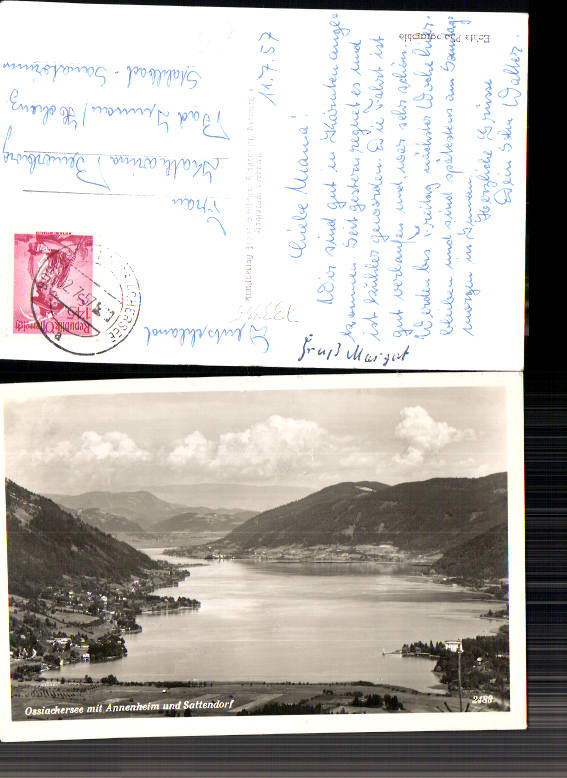 11.7.57
Liebe Mama!
Wir sind gut in Kärnten ange-
kommen. Seit gestern regnet es und
ist kühler geworden. Die Fahrt ist
gut verlaufen und war sehr schön.
Werden bis Freitag nächster Woche hier
bleiben und sind spätestens am Samstag
morgen in
Herzliche Grüsse
Dein Sohn Walter.
Gruß Margot
Frau
Katharina
Bad Imnau / Hohenz.
Stahlbad - Sanatorium
Deutschland
Republik Österreich
1.45
Ossiachersee mit Annenheim und Sattendorf
2488